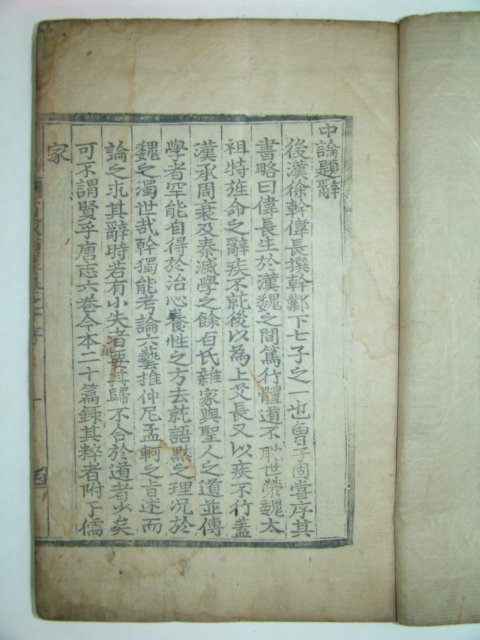 中論題辭
後漢徐幹偉長撰幹鄴下七子之一也曾子固嘗序其
書略曰偉長生於漢魏之間篤行體道不耽世榮魏太
祖特旌命之辭疾不就後以為上艾長又以疾不行蓋
漢承周衰及秦滅學之餘百氏雜家與聖人之道並傳
學者罕能自得於治心養性之方去就語默之理況於
魏之濁世哉幹獨能考論六藝推仲尼孟軻之旨述而
論之求其辭時若有小失者要其歸不合於道者少矣
可不謂賢乎唐志六卷今本二十篇錄其粹者附于儒
家